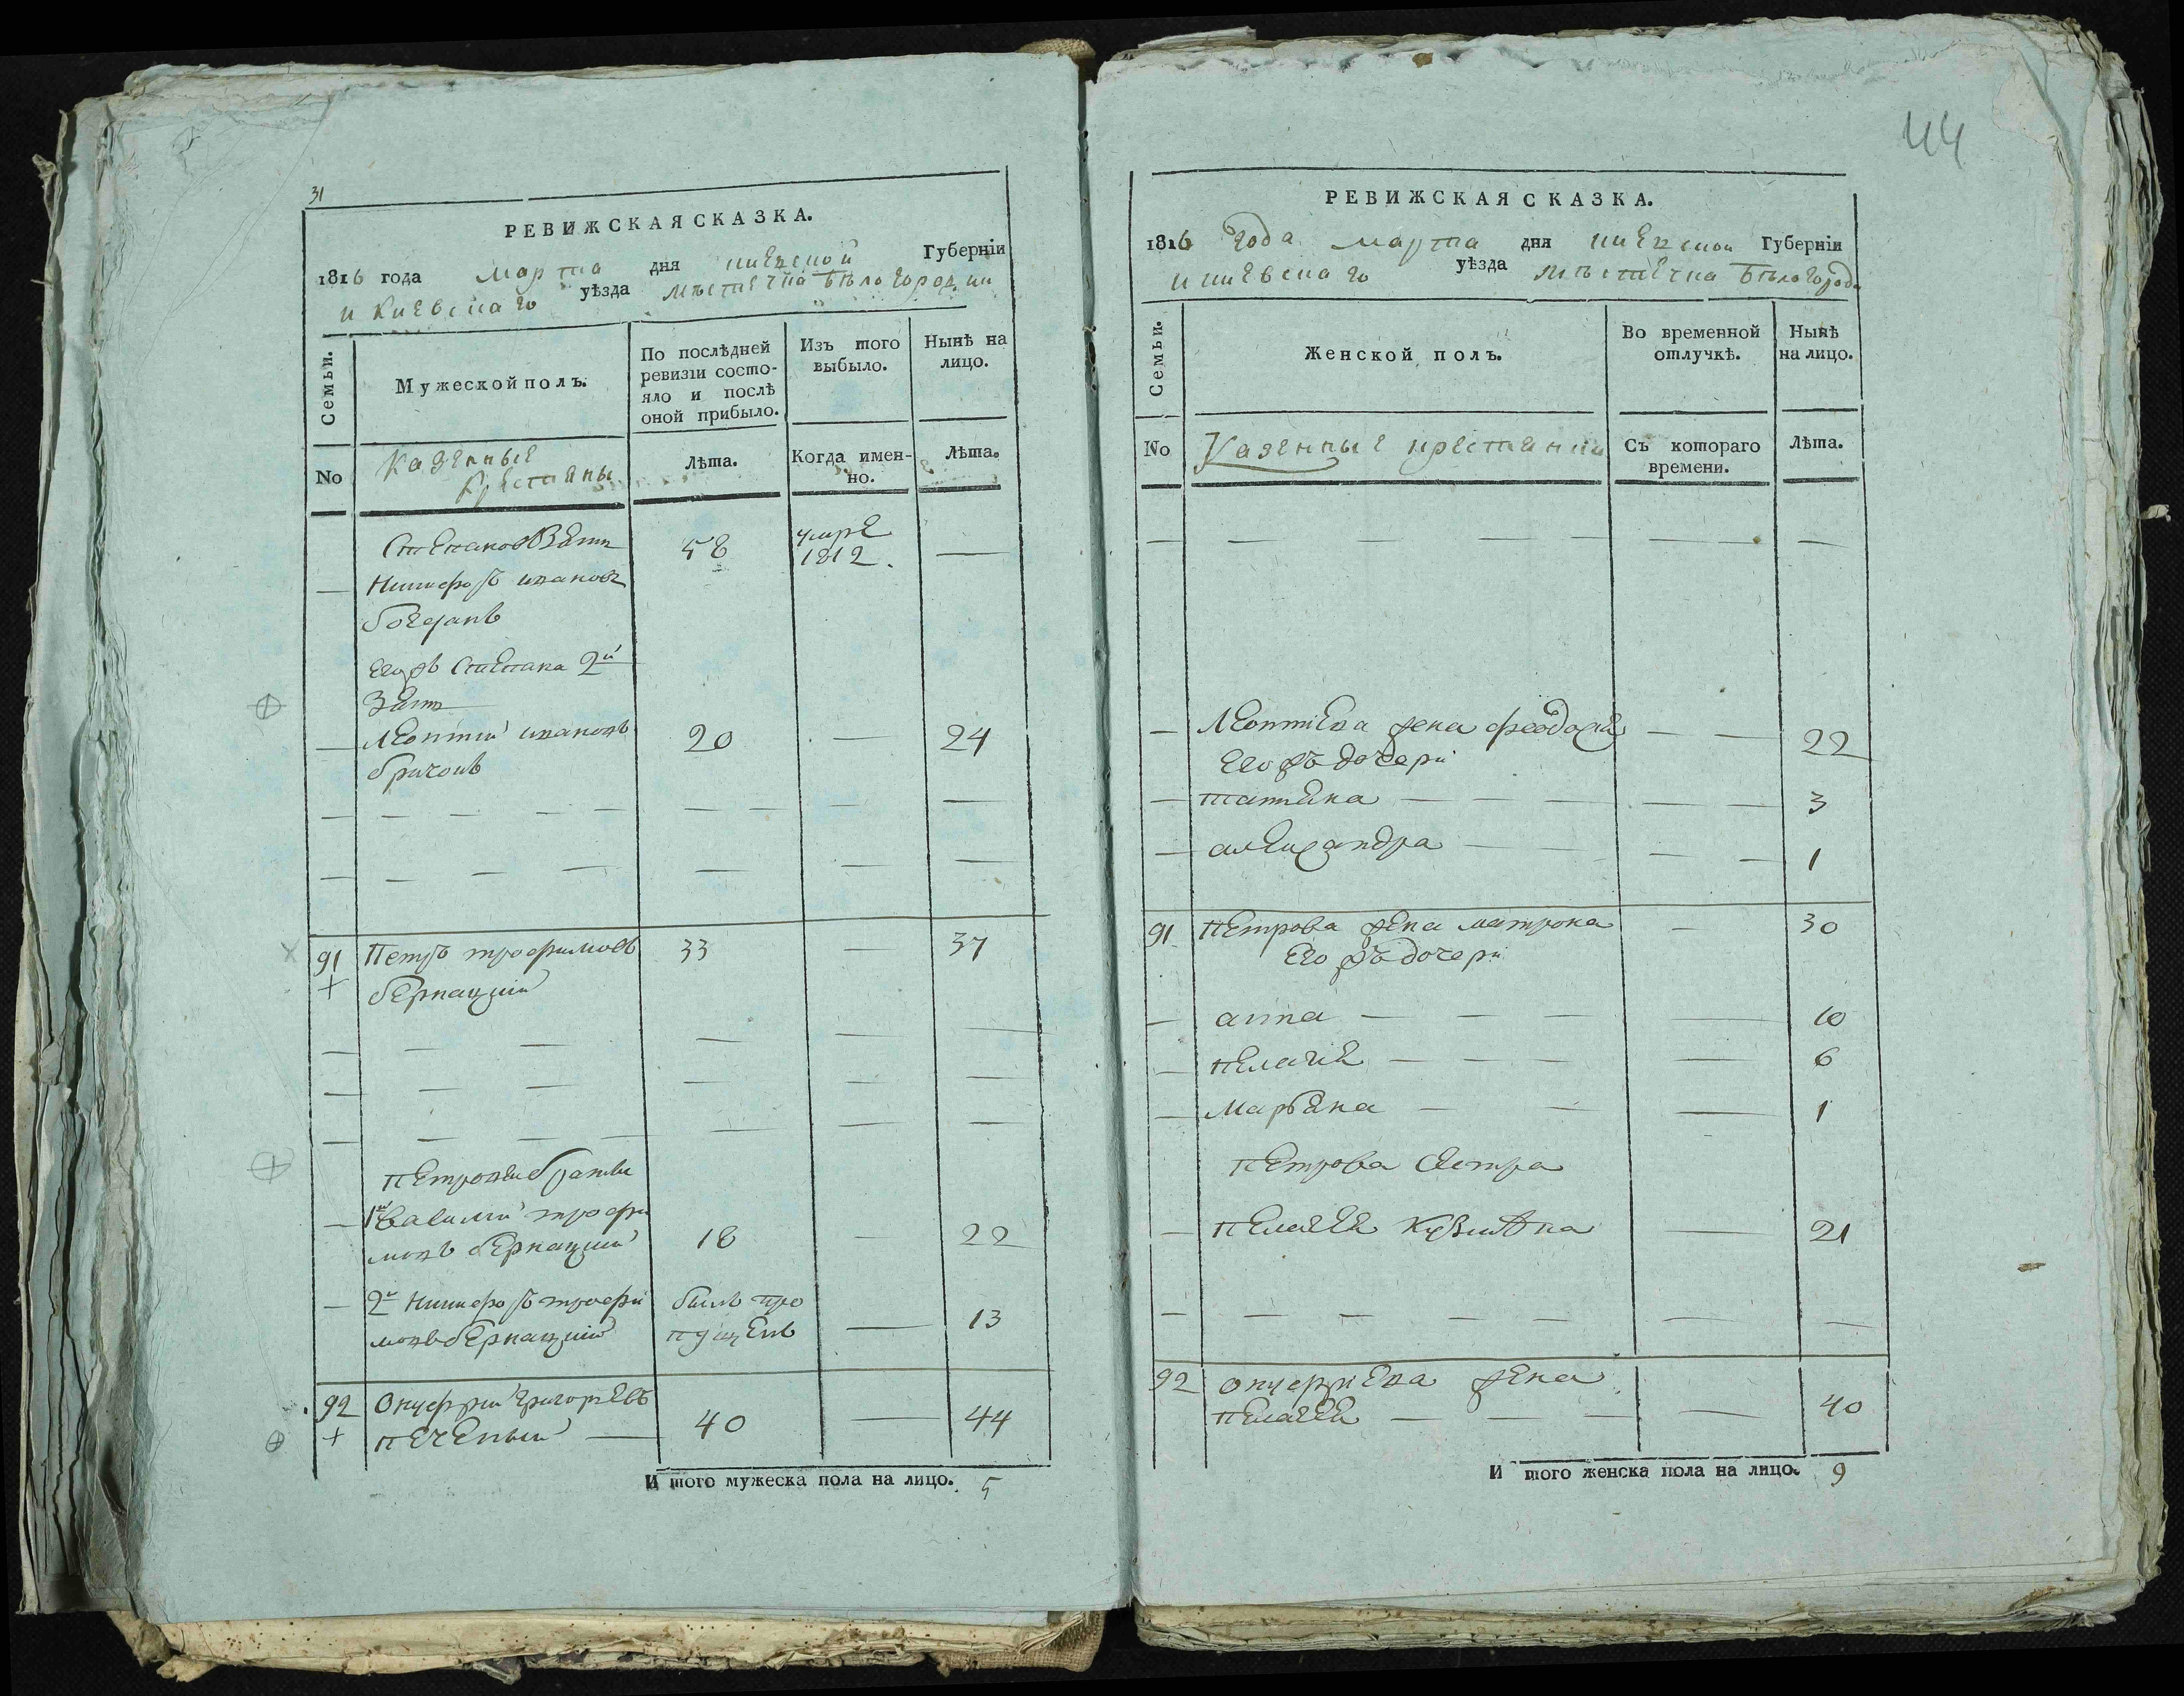 31
РЕВИЖСКАЯ СКАЗКА.
1816 года марта дня киевской Губернiи
и Киевскаго уѣзда мѣстечка Бѣлогородки
Семьи.
Мужеской полъ.
По послѣдней
ревизiи состо-
яло и послѣ
оной прибыло.
Изъ того
выбыло.
Нынѣ на
лицо.
No
Казенные
крестяны
Лѣта.
Когда имен-
но.
Лѣта.
Степановъ Зять 58 умре
1812.
— Никифоръ ивановъ —
Егожъ Степана 2й
Зять
— Леонтий ивановъ 20 — 24
91 Петръ трофимовъ 33 — 37
+ бернацкий
Петровы братьи
— 1й Василий трофи
мовъ бернацкий 18 — 22
— 2й Никифоръ трофи былъ про
мовъ бернацкий пущенъ — 13
92 Онуфрий григорьевъ
+ печеный — 40 — 44
И того мужеска пола на лицо. 5
44
РЕВИЖСКАЯ СКАЗКА.
1816 года марта дня киевской Губернiи
и киевскаго уѣзда мѣстечка Бѣлогородки
Семьи.
Женской полъ.
Во временной
отлучкѣ.
Нынѣ
на лицо.
No
Казенные крестянки
Съ котораго
времени.
Лѣта.
— Леонтиева жена феодосия — — 22
Егожъ дочери
— татияна — — — 3
— александра — — — 1
91 Петрова жена матрона — 30
Его жъ дочери
— анна — — — 10
— пелагие — — — 6
— Марьяна — — — 1
петрова сестра
— пелагея — 21
92 онуфриева жена
пелагея — — — 40
И того женска пола на лицо. 9